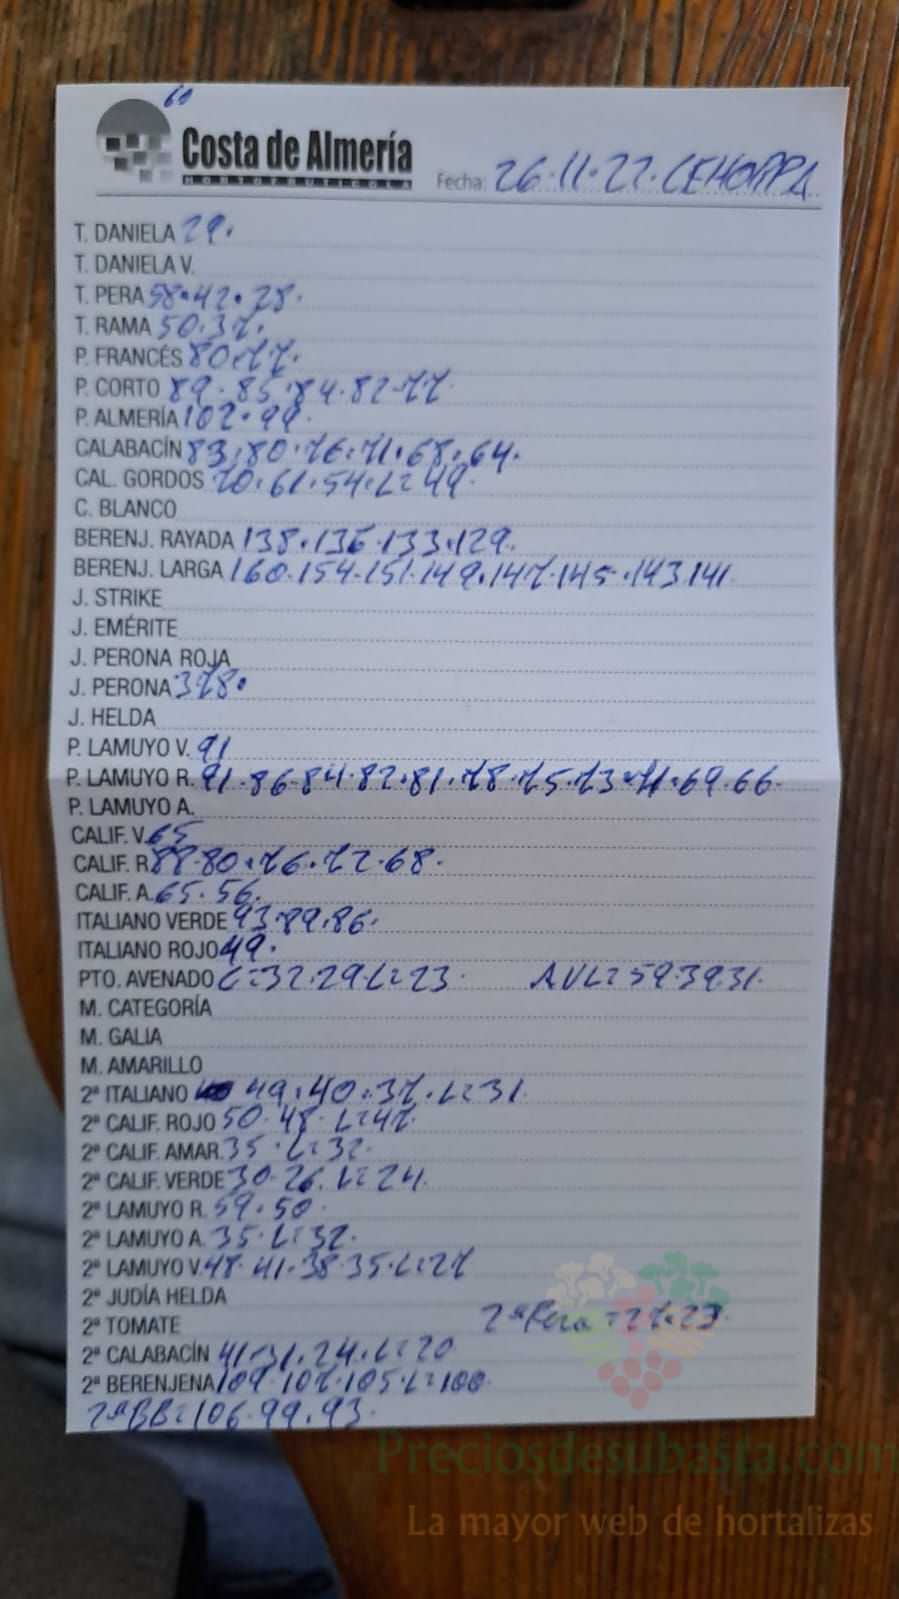 60
Costa de Almería
HORTOFRUTICOLA
Fecha: 26.11.22. CEHORPA
T. DANIELA 29.
T. DANIELA V.
T. PERA 58.42.28.
T. RAMA 50.37.
P. FRANCÉS 80.77.
P. CORTO 89.85.84.82.77.
P. ALMERÍA 102.99.
CALABACÍN 83.80.76.71.68.64.
CAL. GORDOS 70.61.54.L=49.
C. BLANCO
BERENJ. RAYADA 138.136.133.129.
BERENJ. LARGA 160.154.151.149.147.145.143.141.
J. STRIKE
J. EMÉRITE
J. PERONA ROJA
J. PERONA 378.
J. HELDA
P. LAMUYO V. 91
P. LAMUYO R. 91.86.84.82.81.78.75.73.71.69.66.
P. LAMUYO A.
CALIF. V. 65
CALIF. R. 88.80.76.72.68.
CALIF. A. 65.56.
ITALIANO VERDE 93.89.86.
ITALIANO ROJO 49.
PTO. AVENADO C=32.29.L=23. AVL=59.39.31.
M. CATEGORÍA
M. GALIA
M. AMARILLO
2ª ITALIANO 49.40.37.L=31.
2ª CALIF. ROJO 50.48.L=47.
2ª CALIF. AMAR. 35.L=32.
2ª CALIF. VERDE 30.26.L=24.
2ª LAMUYO R. 59.50.
2ª LAMUYO A. 35.L=32.
2ª LAMUYO V. 48.41.38.35.L=27
2ª JUDÍA HELDA
2ª TOMATE 2ª Pera =27.23.
2ª CALABACÍN 41.31.24.L=20
2ª BERENJENA 109.107.105.L=100
2ªBB=106.99.93.
Preciosdesubasta.com
La mayor web de hortalizas